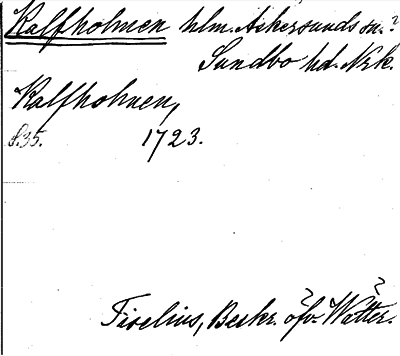 Kalfholmen hlm. Askersunds sn.?
Sundbo hd. Nrk.
Kalfholmen,
S.35. 1723.
Tiselius, Beskr. öfv. Wätter.